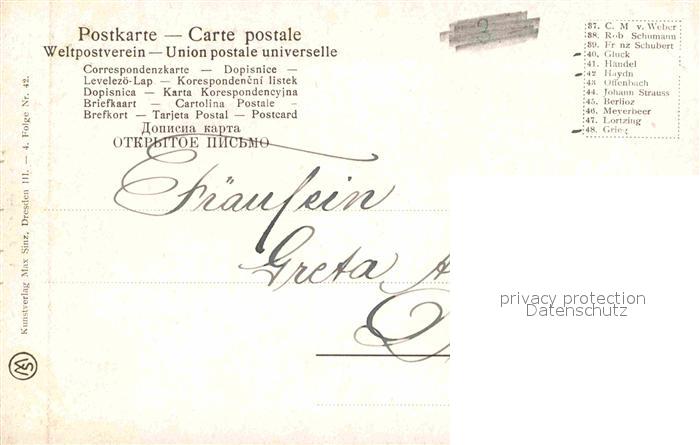 Postkarte — Carte postale
Weltpostverein — Union postale universelle
Correspondenzkarte — Dopisnice —
Levelezö-Lap — Korespondenční listek
Dopisnica — Karta Korespondencyjna
Briefkaart — Cartolina Postale -
Brefkort — Tarjeta Postal — Postcard
Дописна карта
ОТКРЫТОЕ ПИСЬМО
3
37. C. M v. Weber
38. Rob Schumann
39. Fr nz Schubert
40. Gluck
41. Händel
42 Haydn
43 Offenbach
44. Johann Strauss
45. Berlioz
46. Meyerbeer
47. Lortzing
48. Grieg
Kunstverlag Max Sinz, Dresden III. — 4. Folge Nr. 42.
Fräulein
Greta
privacy protection
Datenschutz